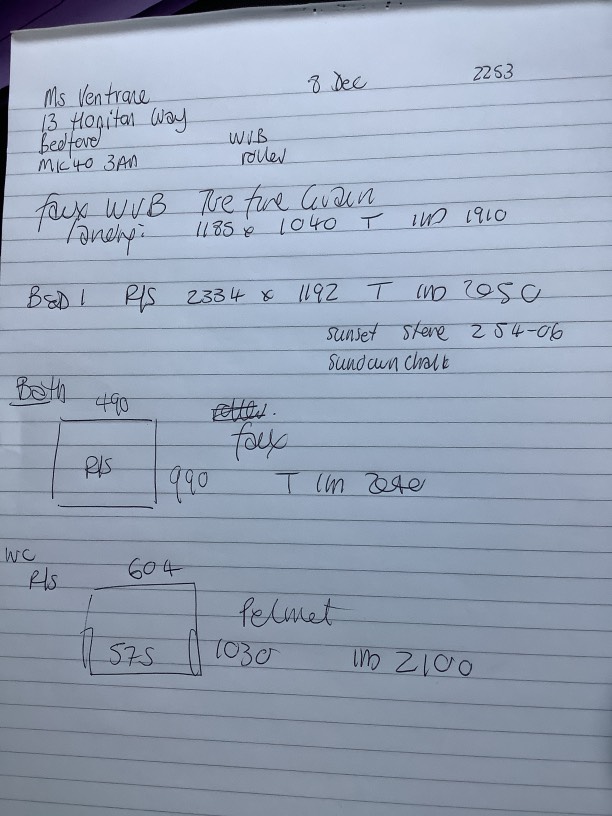 8 Dec 2253
Ms Ventrane
13 Honitan Way
Bedford
MK40 3AN
WVB
roller
faux WVB True fine Grain
1185 x 1040 T IMD 1910
BED 1 R/S 2334 x 1192 T IMD 2050
sunset stone 254-06
Sundown chalk
Bath
490
roller.
faux
R/S
990 T IMD 2040
WC
R/S 604
Pelmet
575 1030 IMD 2100